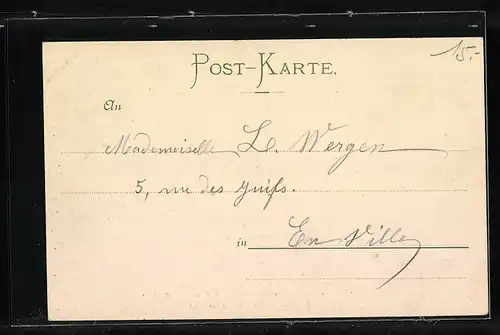 POST-KARTE.
15.-
An
Mademoiselle L. Wergen
5, rue des Juifs.
in En Ville